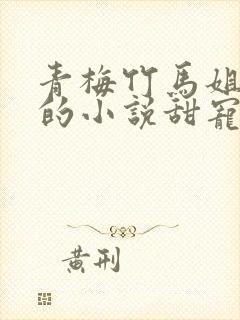 青梅竹馬姐
的小說甜寵
黃刑